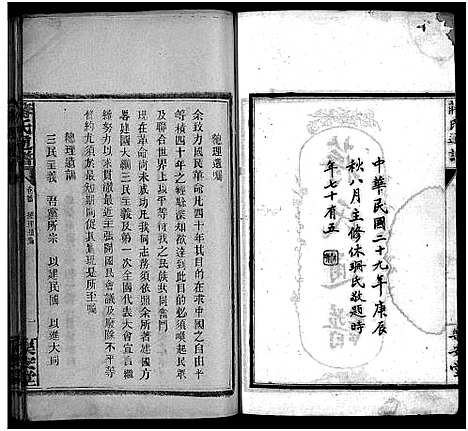 中華民國二十九年庚辰
秋八月主修休珊氏敬題時
年七十有五
總理遺囑
余致力國民革命凡四十年其目的在求中國之自由平
等積四十年之經驗深知欲達到此目的必須喚起民眾
及聯合世界上以平等待我之民族共同奮鬥
現在革命尚未成功凡我同志務須依照余所著建國方
略建國大綱三民主義及第一次全國代表大會宣言繼
續努力以求貫澈最近主張開國民會議及廢除不平等
條約尤須於最短期間促其實現是所至囑
總理遺訓
三民主義 吾黨所宗 以建民國 以進大同